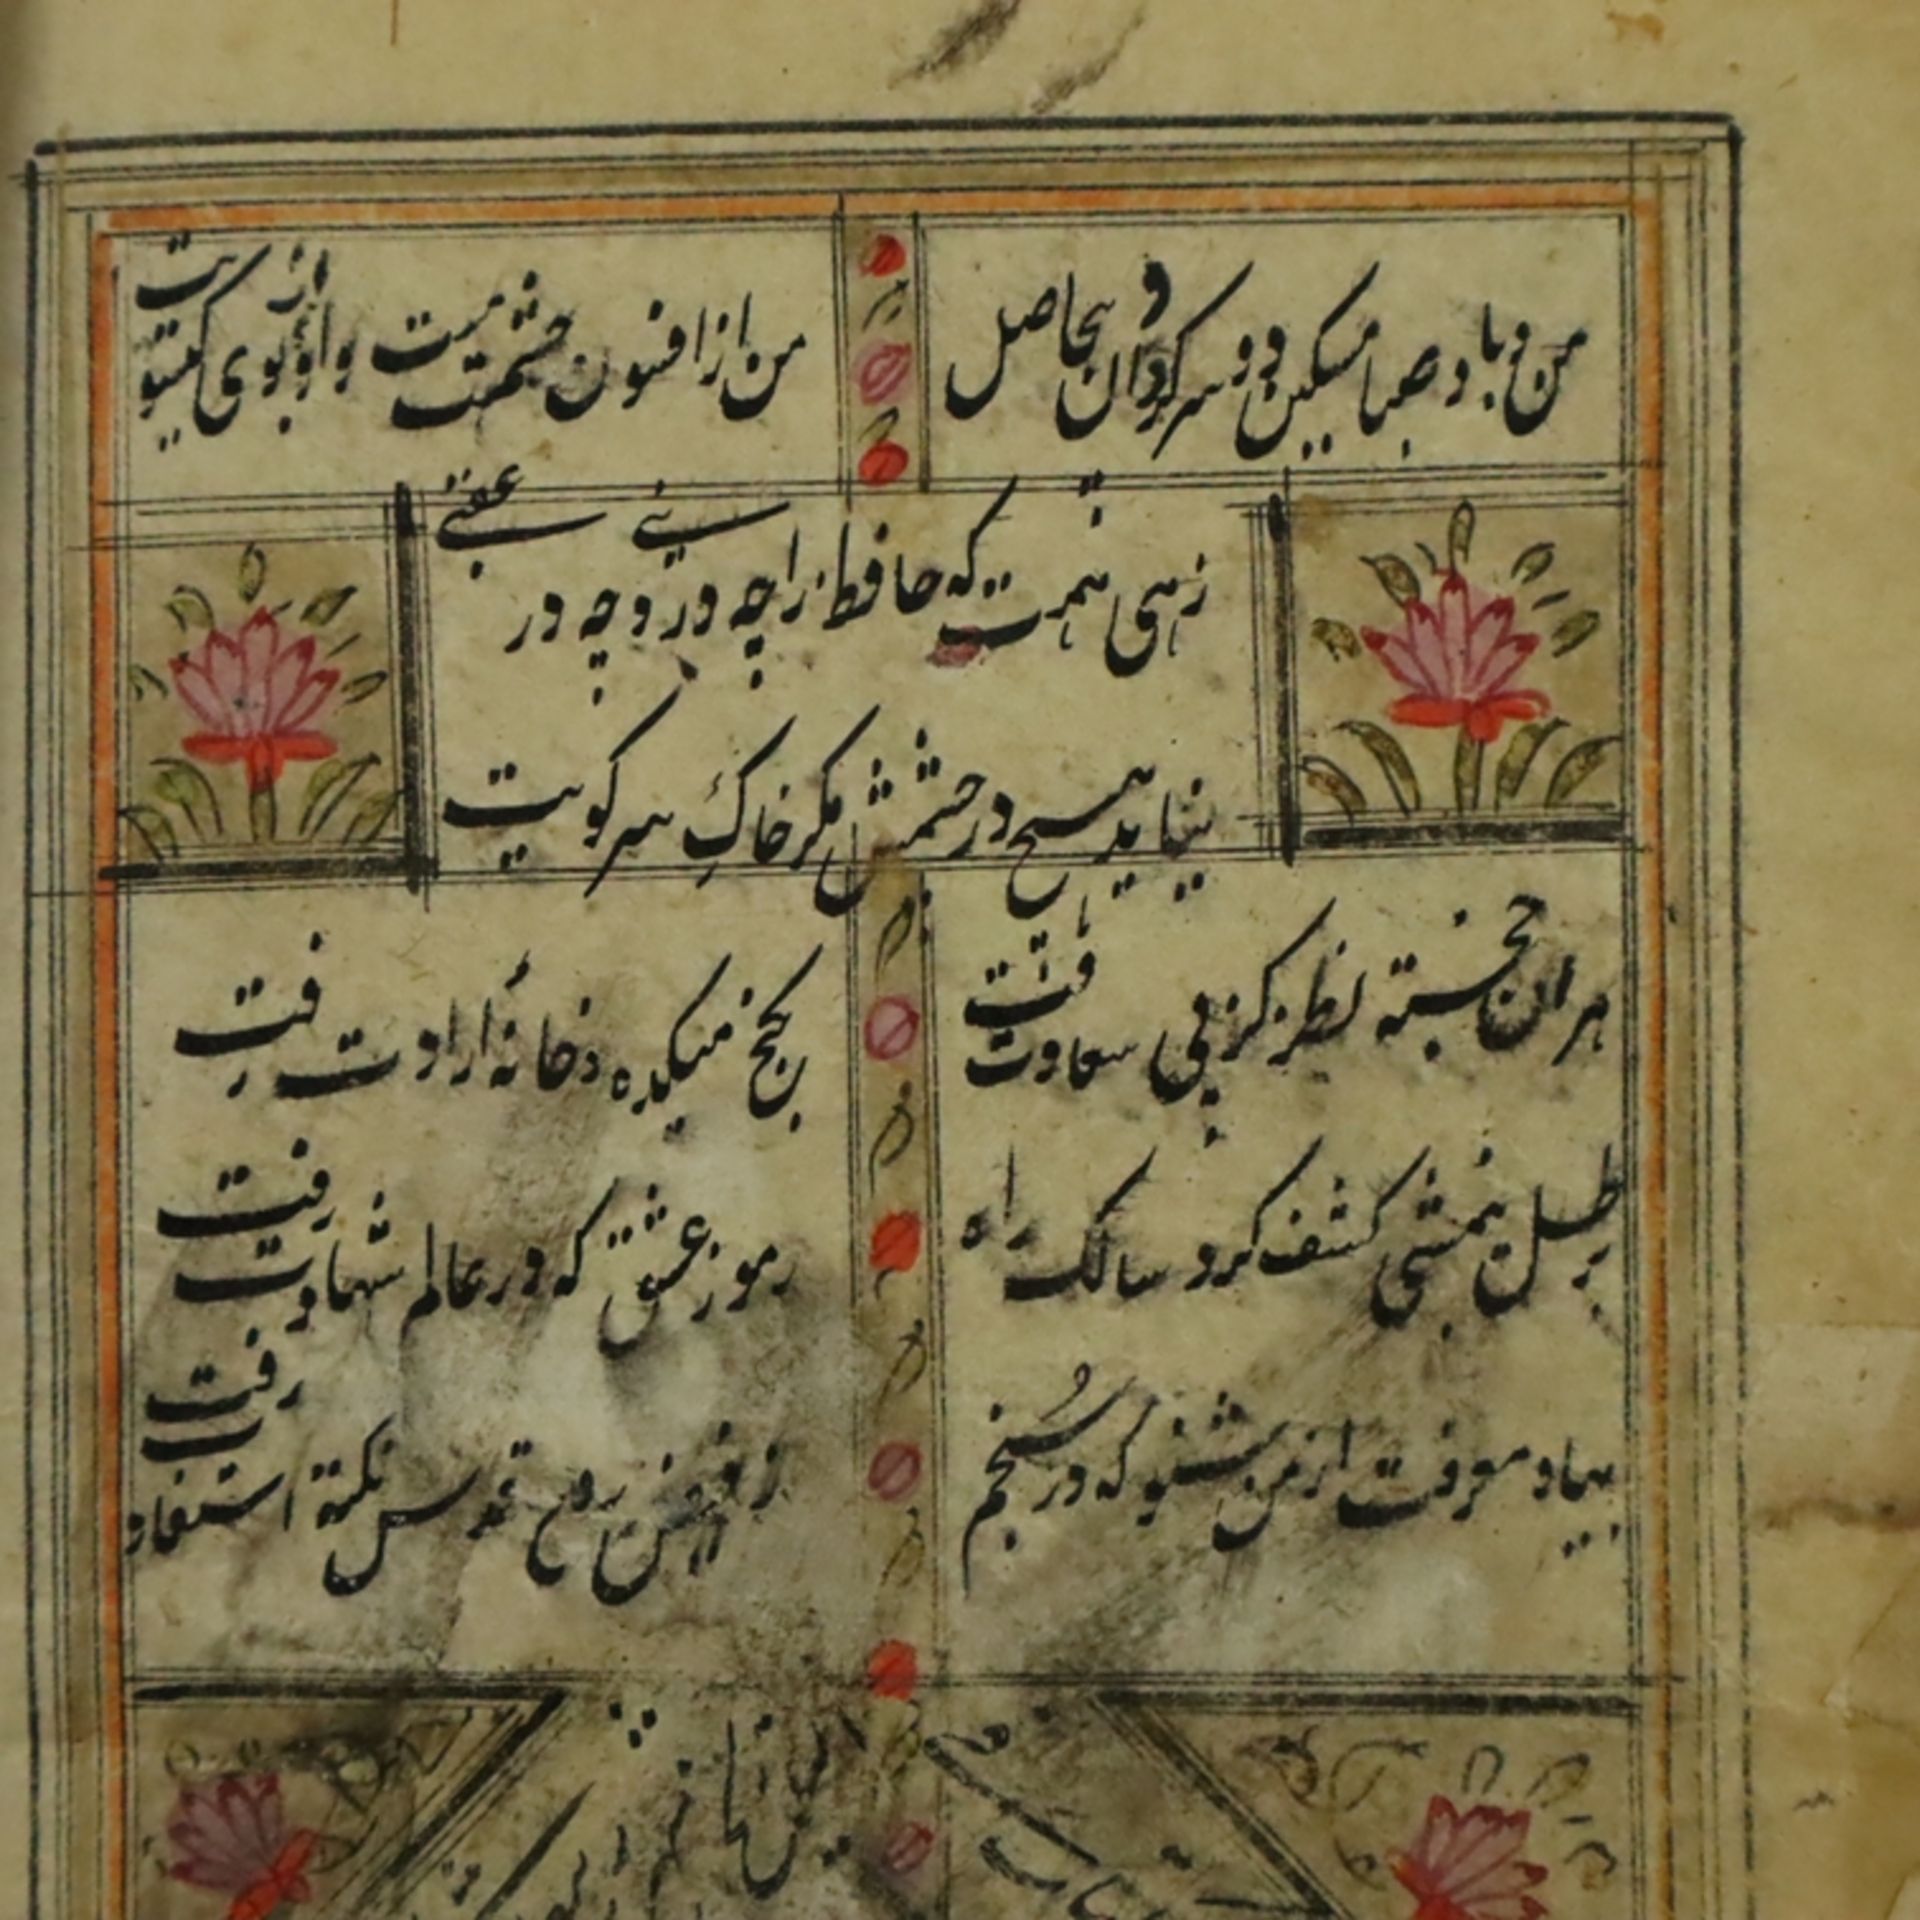 من و باد صبا مسکین دو سرکردان و بیحاصل
من از افسون چشمت مست و او از بوی کیسویت
زهی همت که حافظ راچه در دنیی وچه در عقبی
نیاید هیچ در چشمش مکر خاک سر کویت
هران خجسته نظر کز پی سعادت رفت
بکنج میکده و خانهٔ ارادت رفت
برطل نیمشبی کشف کرد سالک راه
رموز عشق که در عالم شهادت رفت
بیاد معرفت از من شنو که در سخنم
ز فیض روح قدس نکتهٔ استفادت رفت